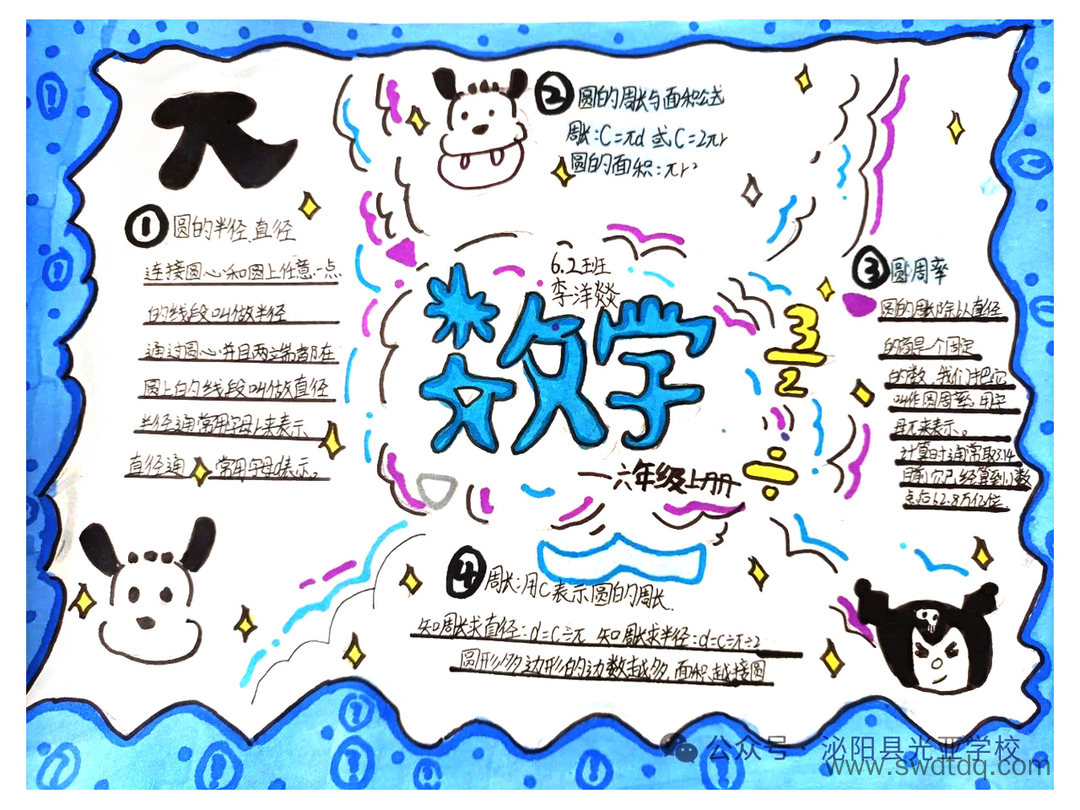 π
① 圆的半径、直径
连接圆心和圆上任意一点
的线段叫做半径
通过圆心并且两端都在
圆上的线段叫做直径
半径通常用字母r来表示
直径通常用字母d表示。
② 圆的周长与面积公式
周长:C=πd 或 C=2πr
圆的面积:πr²
6.2班
李洋燚
数学
六年级上册
3
2
÷
③ 圆周率
圆的周长除以直径
的商是一个固定
的数,我们把它
叫作圆周率,用字
母π来表示。
计算时通常取3.14
目前它已经算到小数
点后62.8万亿位
④ 周长:用C表示圆的周长.
知周长求直径:d=C÷π 知周长求半径:d=C÷π÷2
圆形多边形的边数越多,面积越接圆
公众号·泌阳县光亚学校
www.swdtdq.com